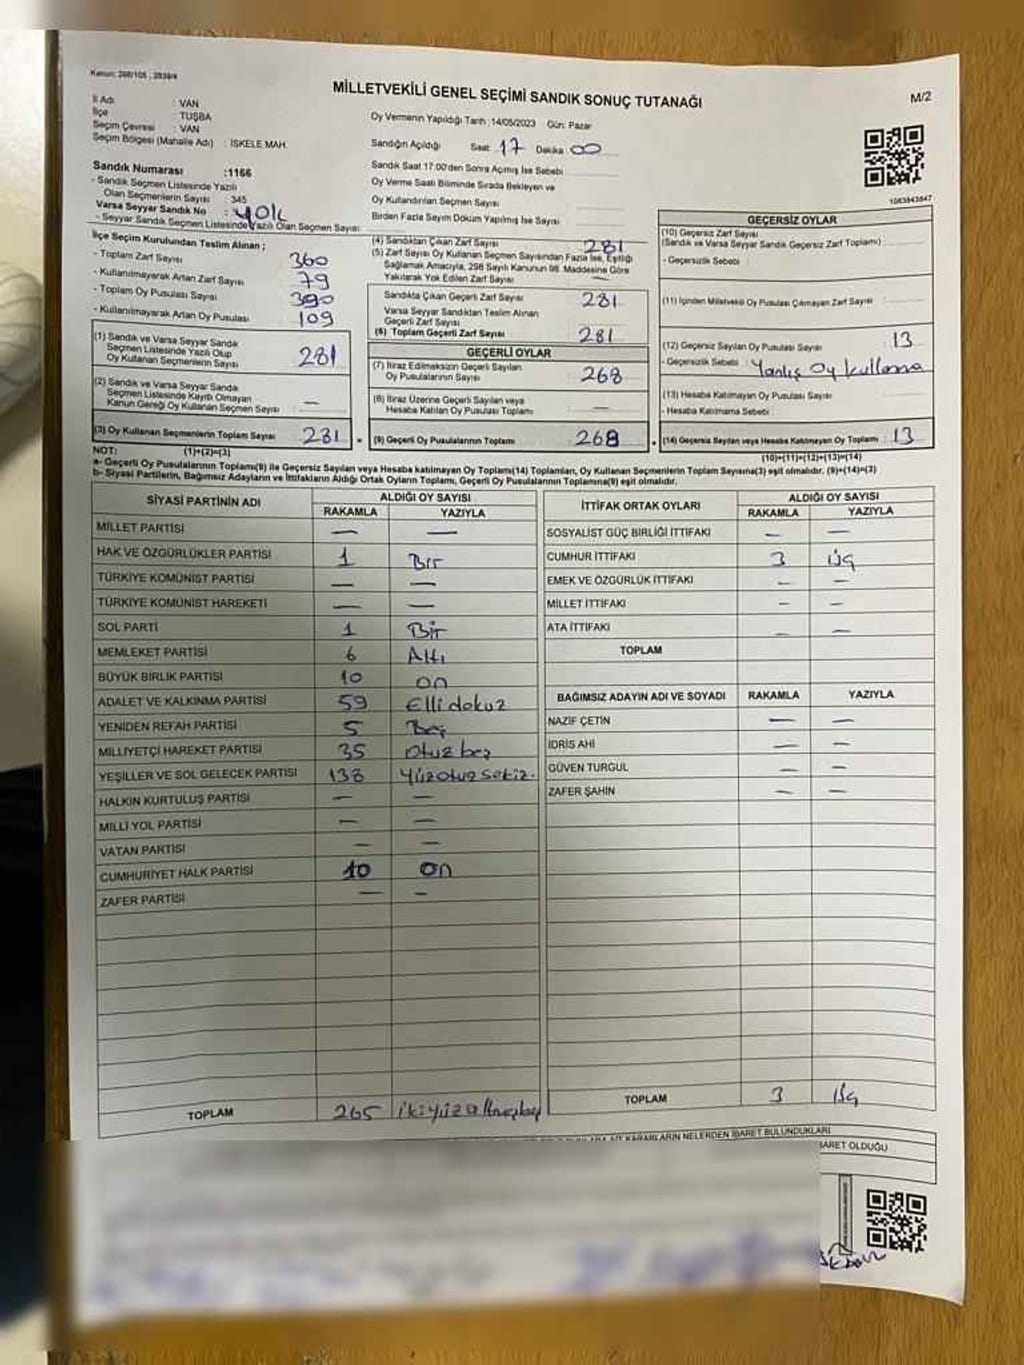 Kanun: 298/105 ; 2839/4
MİLLETVEKİLİ GENEL SEÇİMİ SANDIK SONUÇ TUTANAĞI
M/2
İl Adı : VAN
İlçe : TUŞBA
Seçim Çevresi : VAN
Seçim Bölgesi (Mahalle Adı) : İSKELE MAH.
Sandık Numarası :1166
- Sandık Seçmen Listesinde Yazılı
Olan Seçmenlerin Sayısı : 345
Varsa Seyyar Sandık No : yok
- Seyyar Sandık Seçmen Listesinde Yazılı Olan Seçmen Sayısı
Oy Vermenin Yapıldığı Tarih :14/05/2023 Gün: Pazar
Sandığın Açıldığı Saat: 17 Dakika: 00
Sandık Saat 17:00'den Sonra Açmış İse Sebebi
Oy Verme Saati Bitiminde Sırada Bekleyen ve
Oy Kullandırılan Seçmen Sayısı
Birden Fazla Sayım Döküm Yapılmış İse Sayısı
1083843847
İlçe Seçim Kurulundan Teslim Alınan ;
- Toplam Zarf Sayısı 360
- Kullanılmayarak Artan Zarf Sayısı 79
- Toplam Oy Pusulası Sayısı 390
- Kullanılmayarak Artan Oy Pusulası 109
(1) Sandık ve Varsa Seyyar Sandık
Seçmen Listesinde Yazılı Olup
Oy Kullanan Seçmenlerin Sayısı 281
(2) Sandık ve Varsa Seyyar Sandık
Seçmen Listesinde Kayıtlı Olmayan
Kanun Gereği Oy Kullanan Seçmen Sayısı —
(3) Oy Kullanan Seçmenlerin Toplam Sayısı 281
(1)+(2)=(3)
(4) Sandıktan Çıkan Zarf Sayısı 281
(5) Zarf Sayısı Oy Kullanan Seçmen Sayısından Fazla İse, Eşitliği
Sağlamak Amacıyla, 298 Sayılı Kanunun 98. Maddesine Göre
Yakılarak Yok Edilen Zarf Sayısı —
Sandıkta Çıkan Geçerli Zarf Sayısı 281
Varsa Seyyar Sandıktan Teslim Alınan
Geçerli Zarf Sayısı
(6) Toplam Geçerli Zarf Sayısı 281
GEÇERLİ OYLAR
(7) İtiraz Edilmeksizin Geçerli Sayılan
Oy Pusulalarının Sayısı 268
(8) İtiraz Üzerine Geçerli Sayılan veya
Hesaba Katılan Oy Pusulası Toplamı —
(9) Geçerli Oy Pusulalarının Toplamı 268
GEÇERSİZ OYLAR
(10) Geçersiz Zarf Sayısı
(Sandık ve Varsa Seyyar Sandık Geçersiz Zarf Toplamı)
- Geçersizlik Sebebi
(11) İçinden Milletvekili Oy Pusulası Çıkmayan Zarf Sayısı
(12) Geçersiz Sayılan Oy Pusulası Sayısı 13
- Geçersizlik Sebebi Yanlış Oy kullanma
(13) Hesaba Katılmayan Oy Pusulası Sayısı
- Hesaba Katılmama Sebebi
(14) Geçersiz Sayılan veya Hesaba Katılmayan Oy Toplamı 13
(10)+(11)+(12)+(13)=(14)
NOT:
a- Geçerli Oy Pusulalarının Toplamı(9) ile Geçersiz Sayılan veya Hesaba katılmayan Oy Toplamı(14) Toplamları, Oy Kullanan Seçmenlerin Toplam Sayısına(3) eşit olmalıdır. (9)+(14)=(3)
b- Siyasi Partilerin, Bağımsız Adayların ve İttifakların Aldığı Ortak Oyların Toplamı, Geçerli Oy Pusulalarının Toplamına(9) eşit olmalıdır.
SİYASİ PARTİNİN ADI ALDIĞI OY SAYISI
RAKAMLA YAZIYLA
MİLLET PARTİSİ — —
HAK VE ÖZGÜRLÜKLER PARTİSİ 1 Bir
TÜRKİYE KOMÜNİST PARTİSİ — —
TÜRKİYE KOMÜNİST HAREKETİ — —
SOL PARTİ 1 Bir
MEMLEKET PARTİSİ 6 Altı
BÜYÜK BİRLİK PARTİSİ 10 on
ADALET VE KALKINMA PARTİSİ 59 Elli dokuz
YENİDEN REFAH PARTİSİ 5 Beş
MİLLİYETÇİ HAREKET PARTİSİ 35 otuz beş
YEŞİLLER VE SOL GELECEK PARTİSİ 138 Yüzotuz sekiz.
HALKIN KURTULUŞ PARTİSİ — —
MİLLİ YOL PARTİSİ — —
VATAN PARTİSİ — —
CUMHURİYET HALK PARTİSİ 10 on
ZAFER PARTİSİ — —
TOPLAM 265 ikiyüzaltmışbeş
İTTİFAK ORTAK OYLARI ALDIĞI OY SAYISI
RAKAMLA YAZIYLA
SOSYALİST GÜÇ BİRLİĞİ İTTİFAKI — —
CUMHUR İTTİFAKI 3 üç
EMEK VE ÖZGÜRLÜK İTTİFAKI — —
MİLLET İTTİFAKI — —
ATA İTTİFAKI — —
TOPLAM
BAĞIMSIZ ADAYIN ADI VE SOYADI RAKAMLA YAZIYLA
NAZİF ÇETİN — —
İDRİS AHİ — —
GÜVEN TURGUL — —
ZAFER ŞAHİN — —
TOPLAM 3 üç
KARARLARIN NELERDEN İBARET BULUNDUKLARI
İBARET OLDUĞU